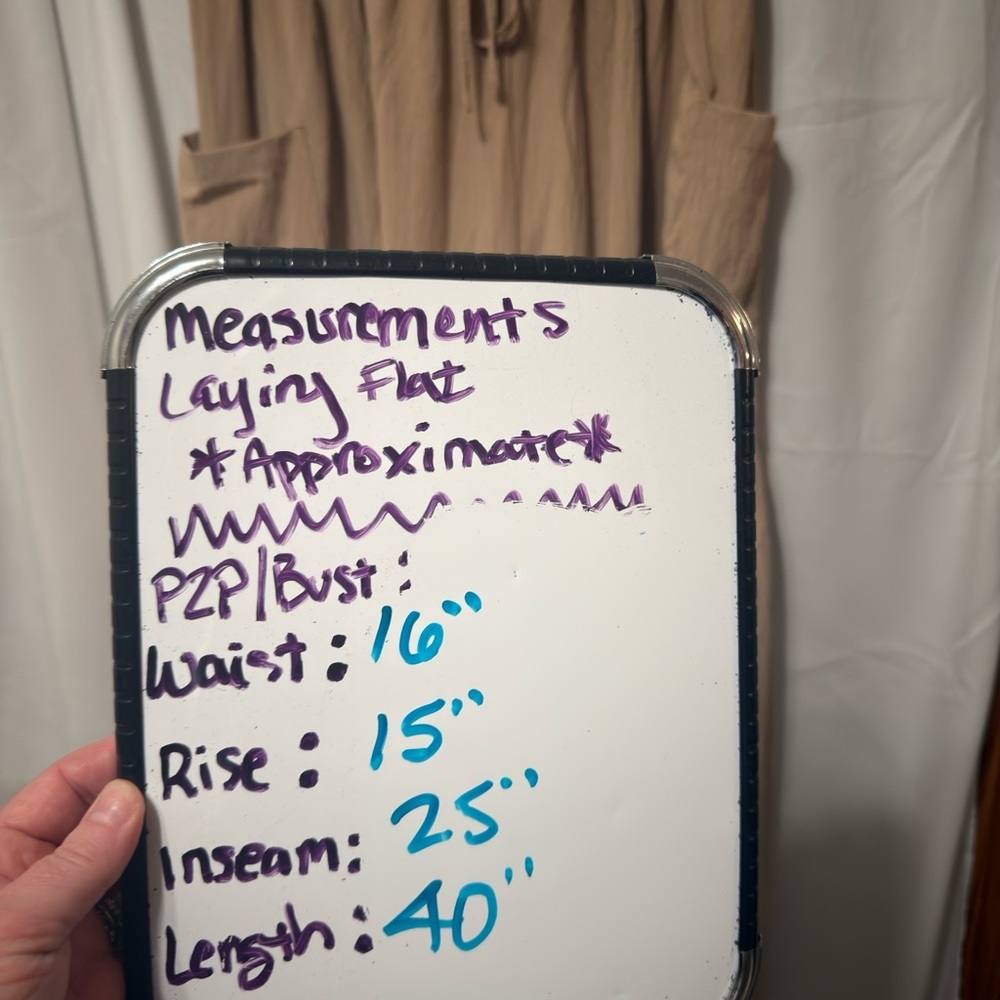 Measurements
Laying Flat
*Approximate*
P2P/Bust:
Waist: 16"
Rise: 15"
Inseam: 25"
Length: 40"